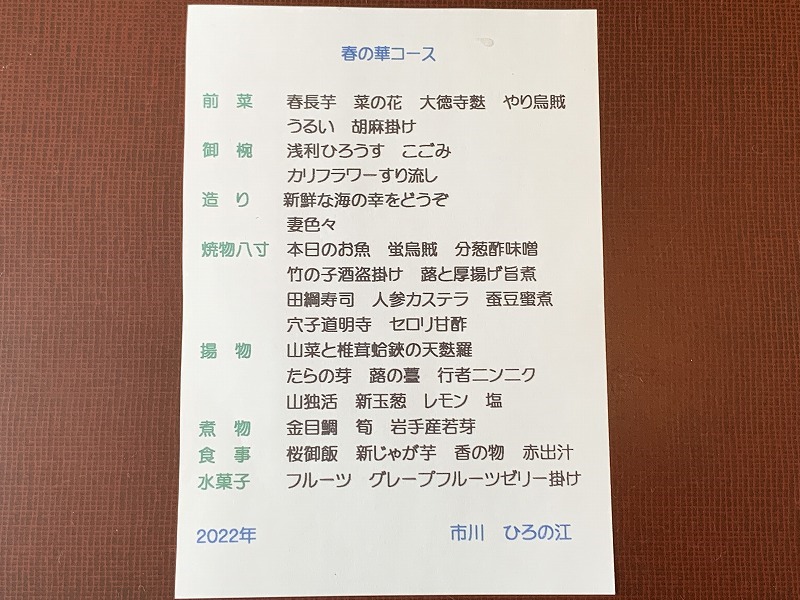 春の華コース
前 菜 春長芋 菜の花 大徳寺麩 やり烏賊
うるい 胡麻掛け
御 椀 浅利ひろうす こごみ
カリフラワーすり流し
造 り 新鮮な海の幸をどうぞ
妻色々
焼物八寸 本日のお魚 蛍烏賊 分葱酢味噌
竹の子酒盗掛け 蕗と厚揚げ旨煮
田綱寿司 人参カステラ 蚕豆蜜煮
穴子道明寺 セロリ甘酢
揚 物 山菜と椎茸蛤鋏の天麩羅
たらの芽 蕗の薹 行者ニンニク
山独活 新玉葱 レモン 塩
煮 物 金目鯛 筍 岩手産若芽
食 事 桜御飯 新じゃが芋 香の物 赤出汁
水菓子 フルーツ グレープフルーツゼリー掛け
2022年 市川 ひろの江